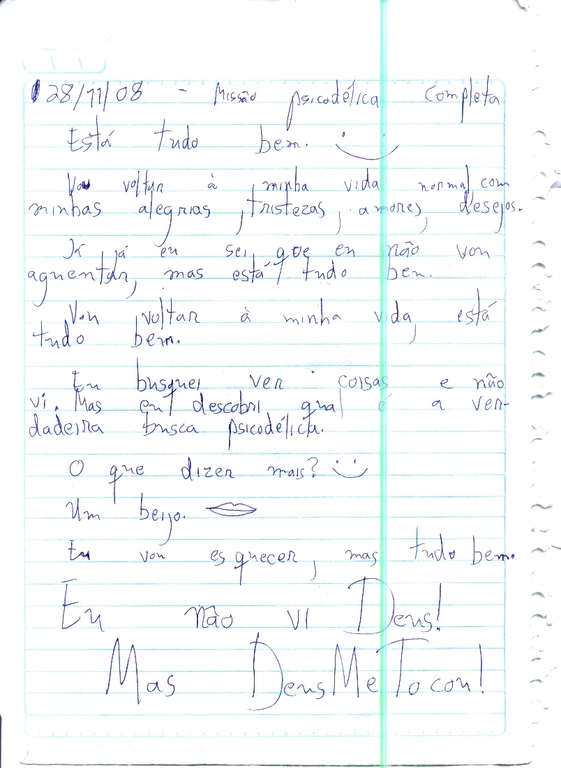 28/11/08 - Missão psicodélica completa
Está tudo bem.
Vou voltar à minha vida normal, com
minhas alegrias, tristezas, amores, desejos.
já eu sei que eu não vou
aguentar, mas está tudo bem.
Vou voltar à minha vida, está
tudo bem.
Eu busquei ver coisas e não
vi. Mas eu descobri qual é a ver-
dadeira busca psicodélica.
O que dizer mais?
Um beijo.
Eu vou esquecer, mas tudo bem.
Eu não vi Deus!
Mas Deus Me Tocou!